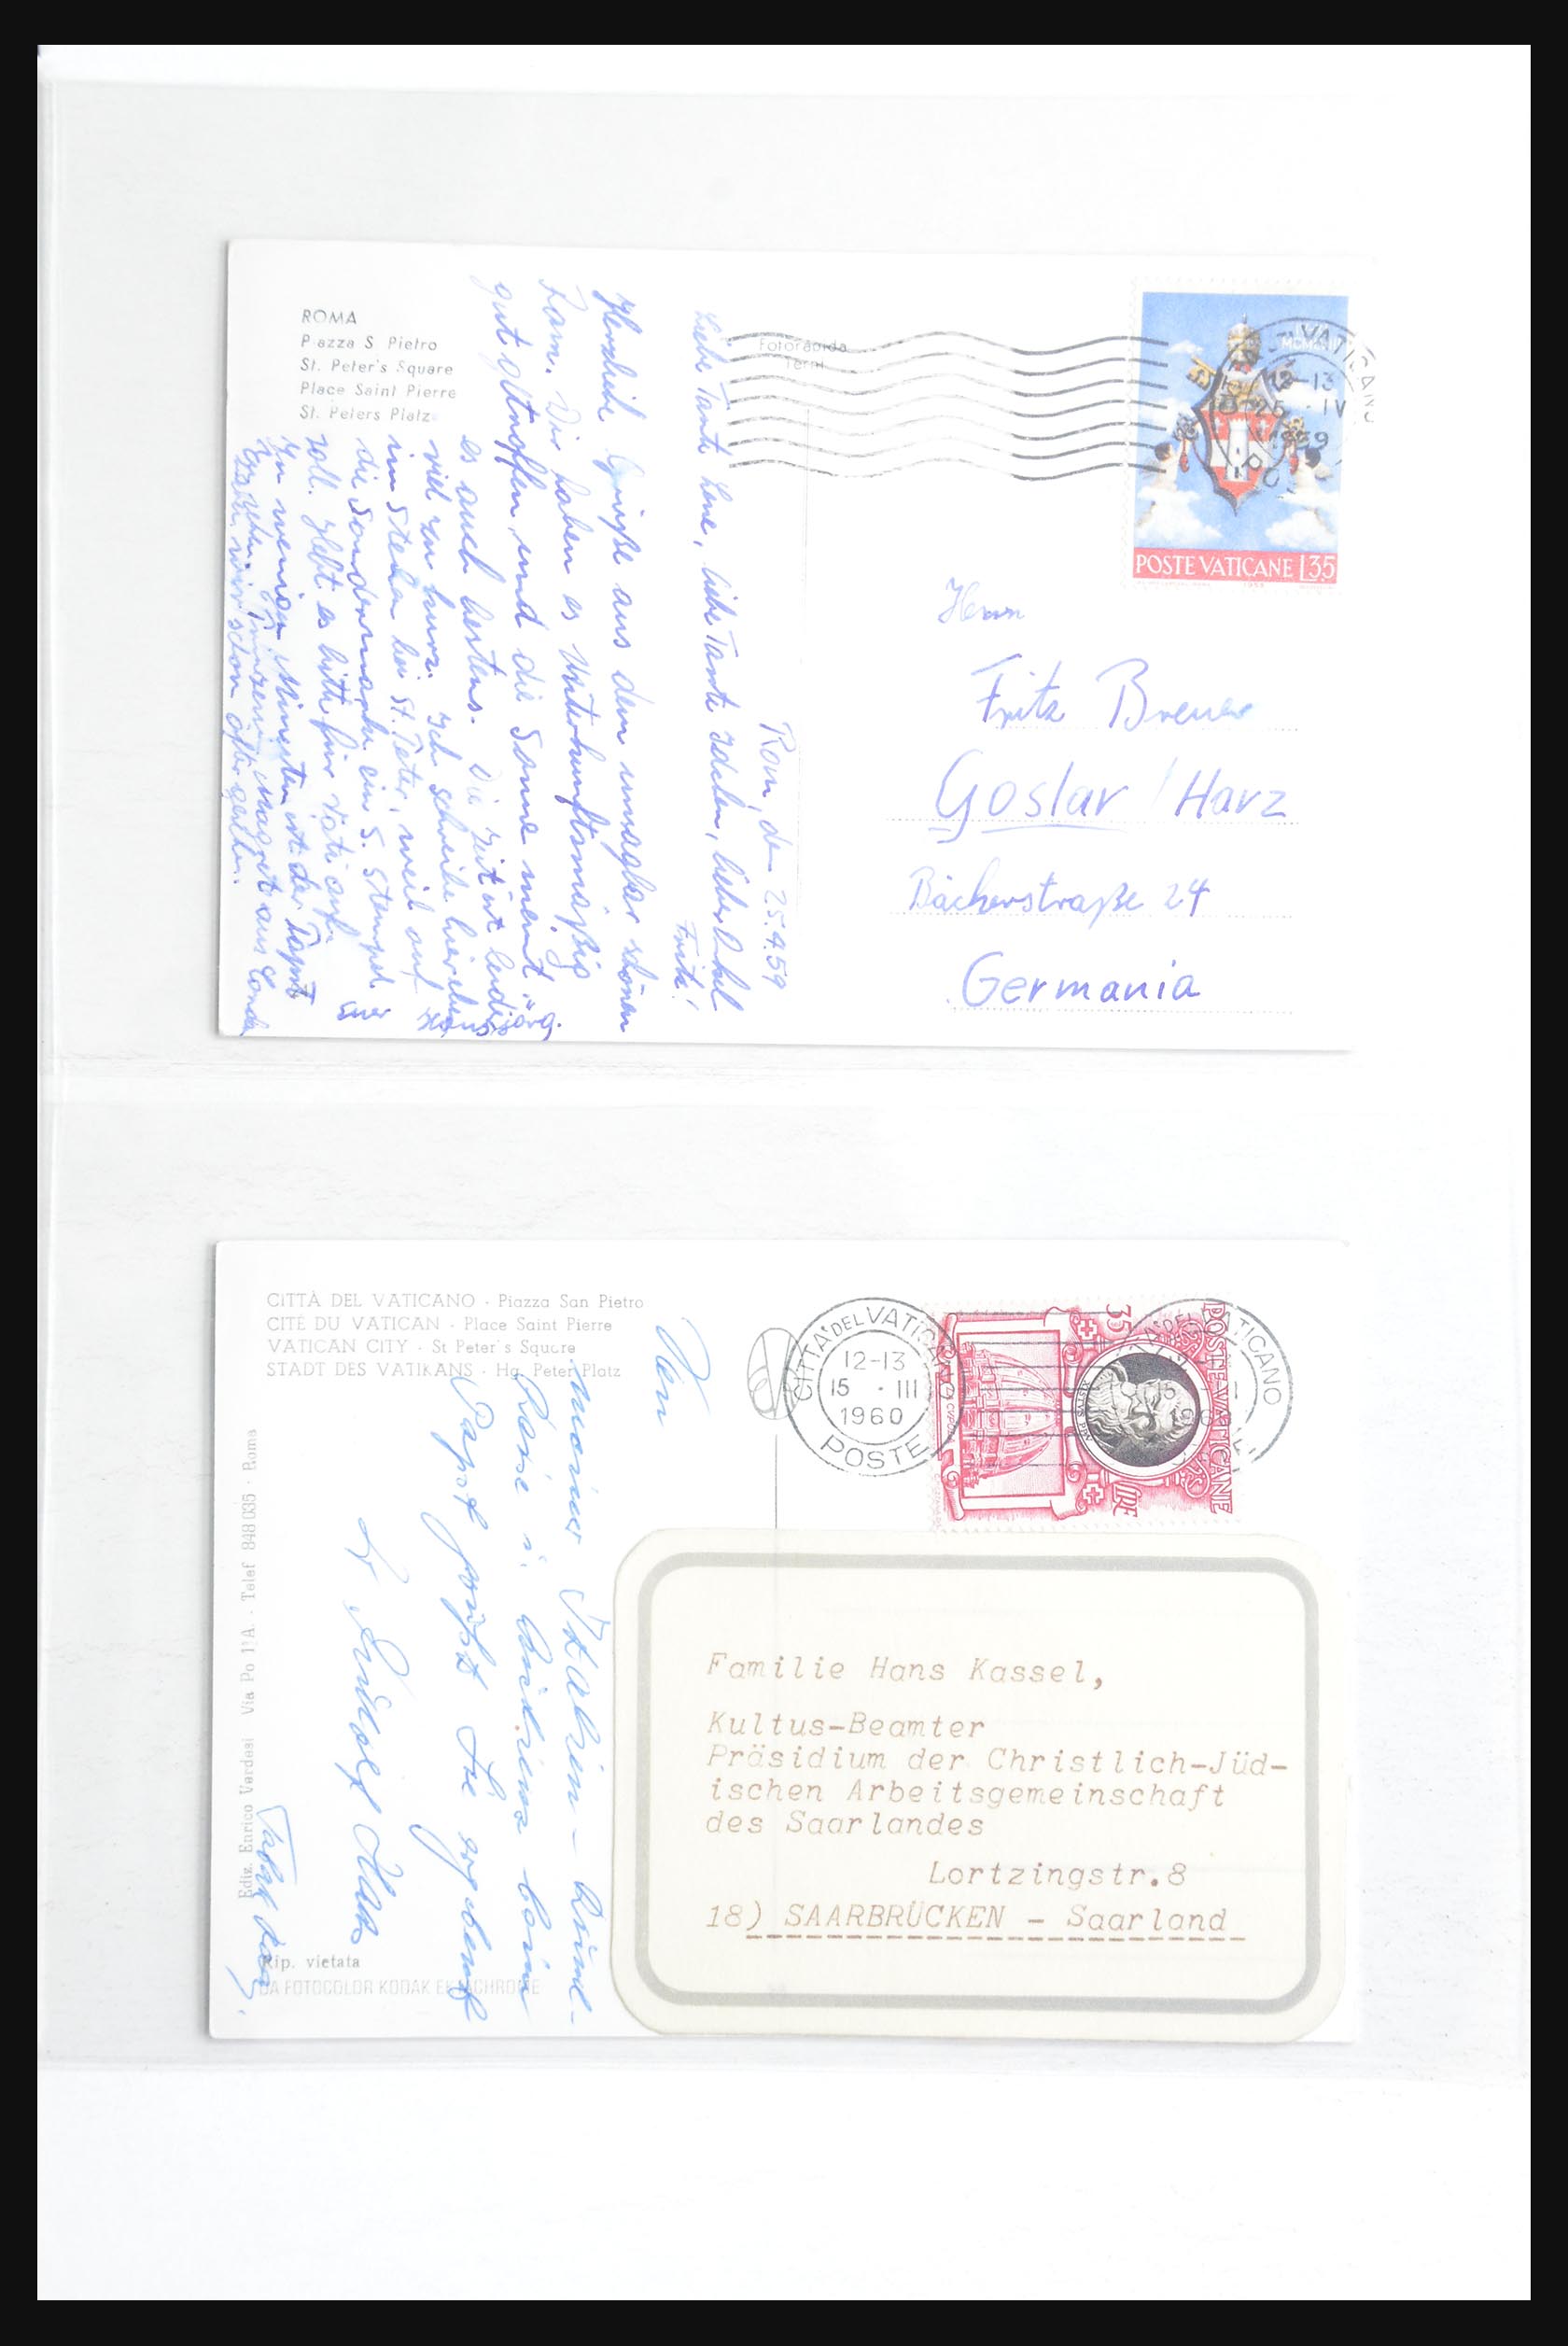 ROMA
Piazza S. Pietro
St. Peter's Square
Place Saint Pierre
St. Peters Platz
Fotorapida
Terni
VATICANO
12-13
25 · IV
1959
POSTE VATICANE L35
Rom, den 25.4.59
Liebe Tante Lene, liebe Tante Idchen, lieber Onkel
Fritz!
Herzliche Grüße aus dem unsagbar schönen
Rom. Wir haben es Unterkunftsmäßig
gut getroffen, und die Sonne meint
es auch bestens. Die Zeit ist
viel zu kurz. Ich schreibe hier
im Stehen bei St. Peter, weil auf
die Sondermarke ein S. Stempel
soll. Hebt es bitte für Vati auf.
In wenigen Minuten ist der Papst
zu sehen. Margret aus
wir schon öfter
Euer Hansjörg.
Herrn
Fritz Breuer
Goslar / Harz
Bäckerstraße 24
Germania
CITTÀ DEL VATICANO - Piazza San Pietro
CITÉ DU VATICAN - Place Saint Pierre
VATICAN CITY - St Peter's Square
STADT DES VATIKANS - Hg. Peter Platz
Ediz. Enrico Verdesi Via Po 1/A - Telef 848 035 - Roma
Rip. vietata
DA FOTOCOLOR KODAK EKTACHROME
CITTA' DEL VATICANO
12-13
15 · III
1960
POSTE
POSTE VATICANE
35
LIRE
SIXTVS V P M
Von
meiner Italien-
Reise
Papst grüßt Sie ergebenst
Familie Hans Kassel,
Kultus-Beamter
Präsidium der Christlich-Jüd-
ischen Arbeitsgemeinschaft
des Saarlandes
Lortzingstr.8
18) SAARBRÜCKEN - Saarland